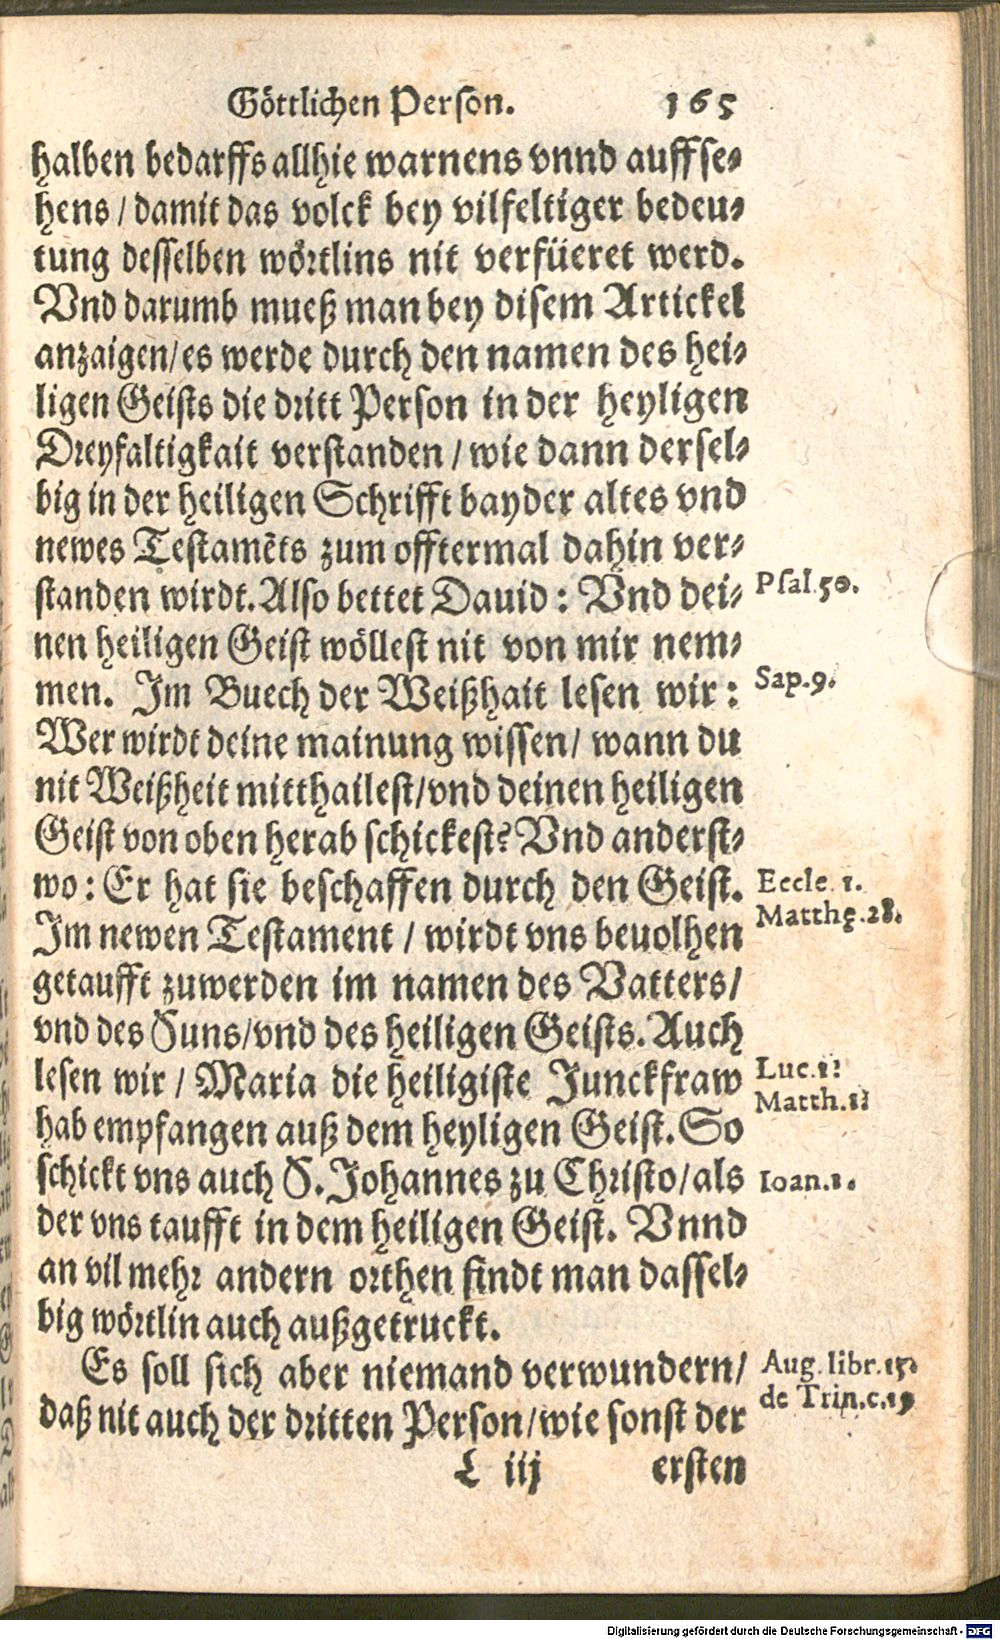 Göttlichen Person. 165
halben bedarffs allhie warnens vnnd auffse-
hens / damit das volck bey vilfeltiger bedeu-
tung desselben wörtlins nit verfüeret werd.
Vnd darumb mueß man bey disem Artickel
anzaigen/es werde durch den namen des hei-
ligen Geists die dritt Person in der heyligen
Dreyfaltigkait verstanden / wie dann dersel-
big in der heiligen Schrifft bayder altes vnd
newes Testamēts zum offtermal dahin ver-
standen wirdt. Also bettet Dauid: Vnd dei- Psal.50.
nen heiligen Geist wöllest nit von mir nem-
men. Im Buech der Weißhait lesen wir: Sap.9.
Wer wirdt deine mainung wissen/ wann du
nit Weißheit mitthailest/vnd deinen heiligen
Geist von oben herab schickest? Vnd anderst-
wo: Er hat sie beschaffen durch den Geist. Eccle.1.
Im newen Testament / wirdt vns beuolhen Matthę.28.
getaufft zuwerden im namen des Vatters/
vnd des Suns/vnd des heiligen Geists. Auch
lesen wir / Maria die heiligiste Junckfraw Luc.1.
hab empfangen auß dem heyligen Geist. So Matth.1.
schickt vns auch S. Johannes zu Christo/als Ioan.1.
der vns taufft in dem heiligen Geist. Vnnd
an vil mehr andern orthen findt man dassel-
big wörtlin auch außgetruckt.
Es soll sich aber niemand verwundern/ Aug. libr.15.
daß nit auch der dritten Person/wie sonst der de Trin.c.19
L iij ersten
Digitalisierung gefördert durch die Deutsche Forschungsgemeinschaft - DFG